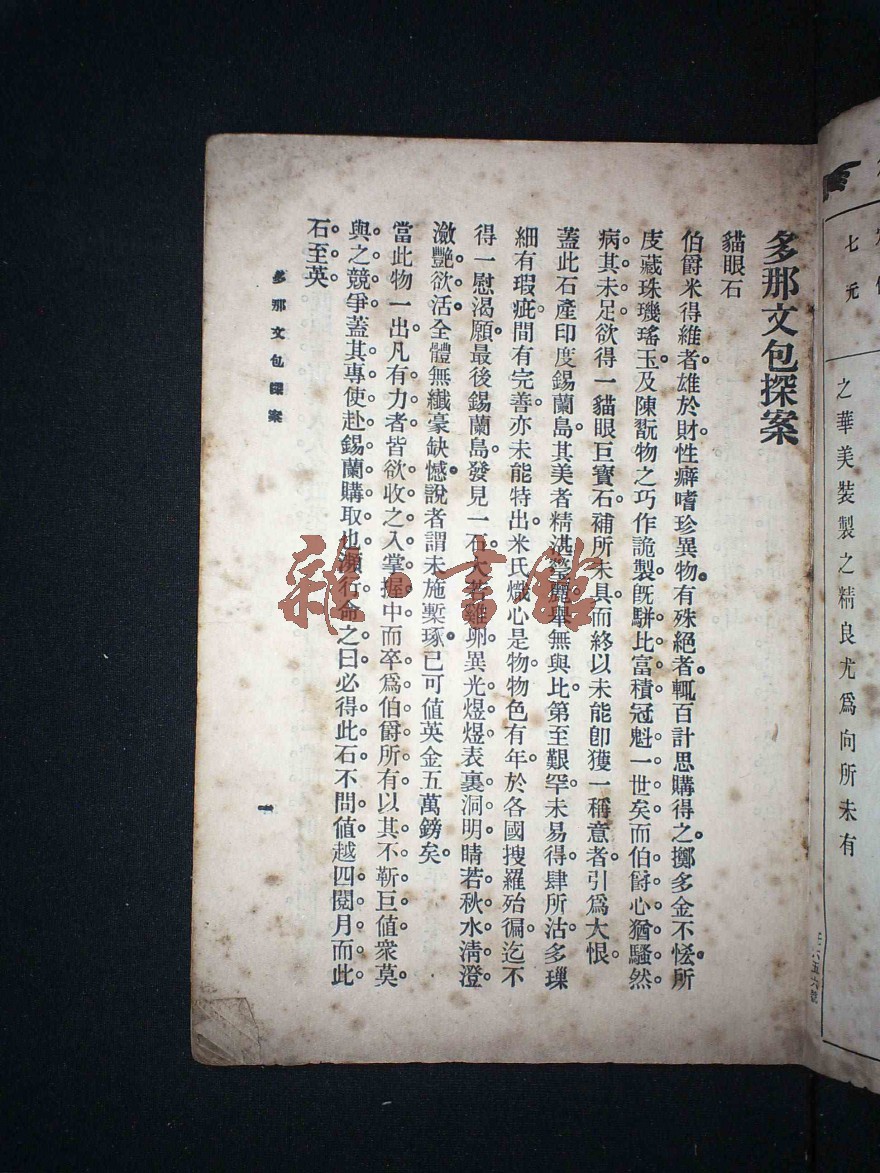 七元
之華美裝製之精良尤爲向所未有
多那文包探案
貓眼石
伯爵米得維者雄於財性癖嗜珍異物有殊絕者輒百計思購得之擲多金不恡所
庋藏珠璣瑤玉及陳翫物之巧作詭製旣駢比富積冠魁一世矣而伯爵心猶騷然
病其未足欲得一貓眼巨寶石補所未具而終以未能卽獲一稱意者引爲大恨
蓋此石產印度錫蘭島其美者精湛瑩麗舉無與比第至艱罕未易得肆所沽多璅
細有瑕疵間有完善亦未能特出米氏熾心是物物色有年於各國搜羅殆徧迄不
得一慰渴願最後錫蘭島發見一石大若雞卵異光煜煜表裏洞明睛若秋水淸澄
瀲艷欲活全體無纖豪缺憾說者謂未施槧琢已可値英金五萬鎊矣
當此物一出凡有力者皆欲收之入掌握中而卒爲伯爵所有以其不靳巨値衆莫
與之競爭蓋其專使赴錫蘭購取也瀕行命之曰必得此石不問値越四閱月而此
石至英
多那文包探案
一
雜·書館